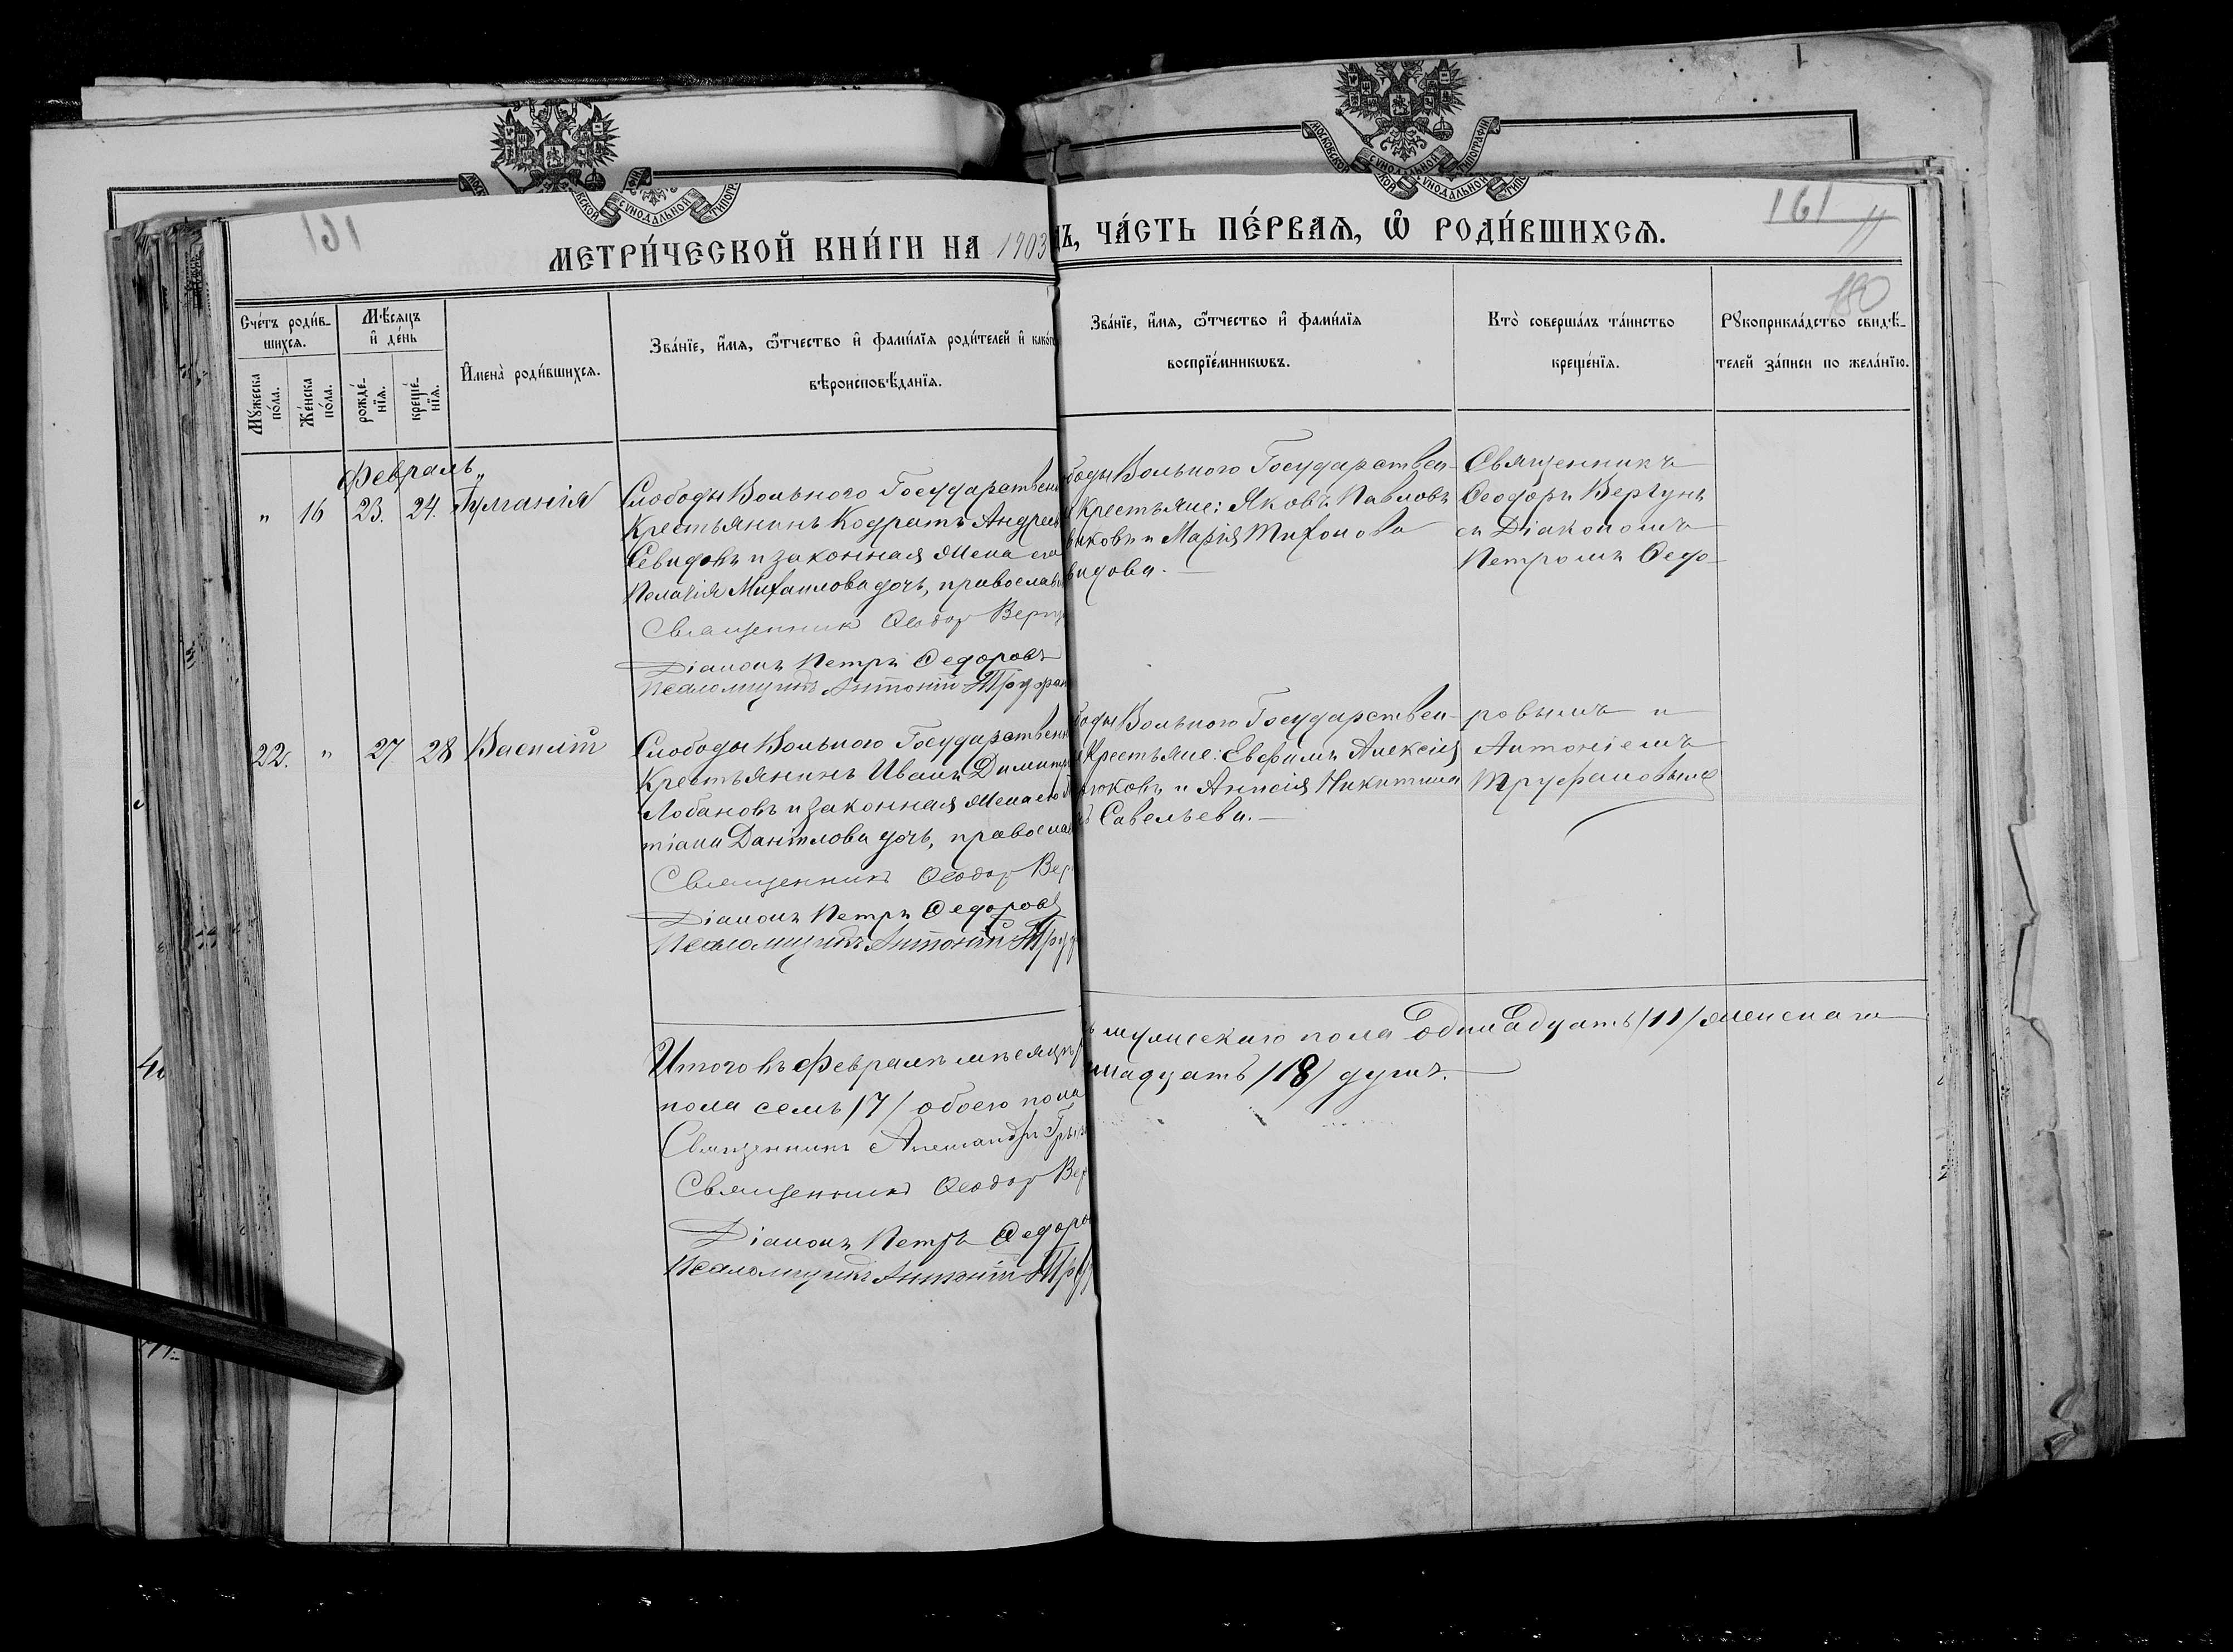 МОСКОВСКОЙ СУНОДАЛЬНОЙ ТИПОГРАФІИ
161
161
МЕТРИ́ЧЕСКОЙ КНИ́ГИ НА 1903
ЧА́СТЬ ПЕ́РВАЯ, Ѡ҆ РОДИ́ВШИХСЯ.
180
Сче́тъ роди́в-
шихся.
Мѣ́сяцъ
и҆ де́нь
Мꙋ́жеска по́ла.
Же́нска по́ла.
рожде́-
нїя.
креще́-
нїя.
И҆мена̀ роди́вшихся.
Зва́нїе, и҆́мя, ѻ҆́тчество и҆ фами́лїя роди́телей и҆ како́г
вѣроисповѣ́данїя.
Зва́нїе, и҆́мя, ѻ҆́тчество и҆ фами́лїя
воспрїе́мникѡвъ.
Кто̀ соверша́лъ та́инство
креще́нїя.
Рꙋкоприкла́дство свидѣ́-
телей за́писи по жела́нїю.
Февраль
" 16 23. 24.
Слободы Вольного Государствен
Крестьянинъ Кодратъ Андрее
Севидовъ и законная жена его
Пелагія Михаилова дочь, православ
Священникъ Ѳеодоръ Верг
Діаконъ Петръ Ѳедоровъ
Псаломщикъ Антоній Труфан
боды Вольного Государствен-
Крестьяне: Яковъ Павловъ
виковъ и Марія Тихонова
видова.
Священникъ
Ѳеодоръ Вергунъ
съ Діакономъ
Петромъ Ѳедо-
22. " 27. 28 Василій
Слободы Вольного Государствен
Крестьянинъ Иванъ Димитр
Лобановъ и законная жена его
тіана Даніилова дочь, правосла
Священникъ Ѳеодоръ Вер
Діаконъ Петръ Ѳедоровъ
Псаломщикъ Антоній Труф
боды Вольного Государствен-
Крестьяне: Евфимъ Алексія
люковъ и Анисія Никитина
Савельева.
ровымъ и
Антоніемъ
Труфановымъ
Итого въ Февралѣ мѣсяцѣ
мужескаго пола Одинадцать /11/ женскаго
пола семь /7/ обоего пола
надцать /18/ душъ.
Священникъ Александръ
Священникъ Ѳеодоръ Вер
Діаконъ Петръ Ѳедоро
Псаломщикъ Антоній Труф